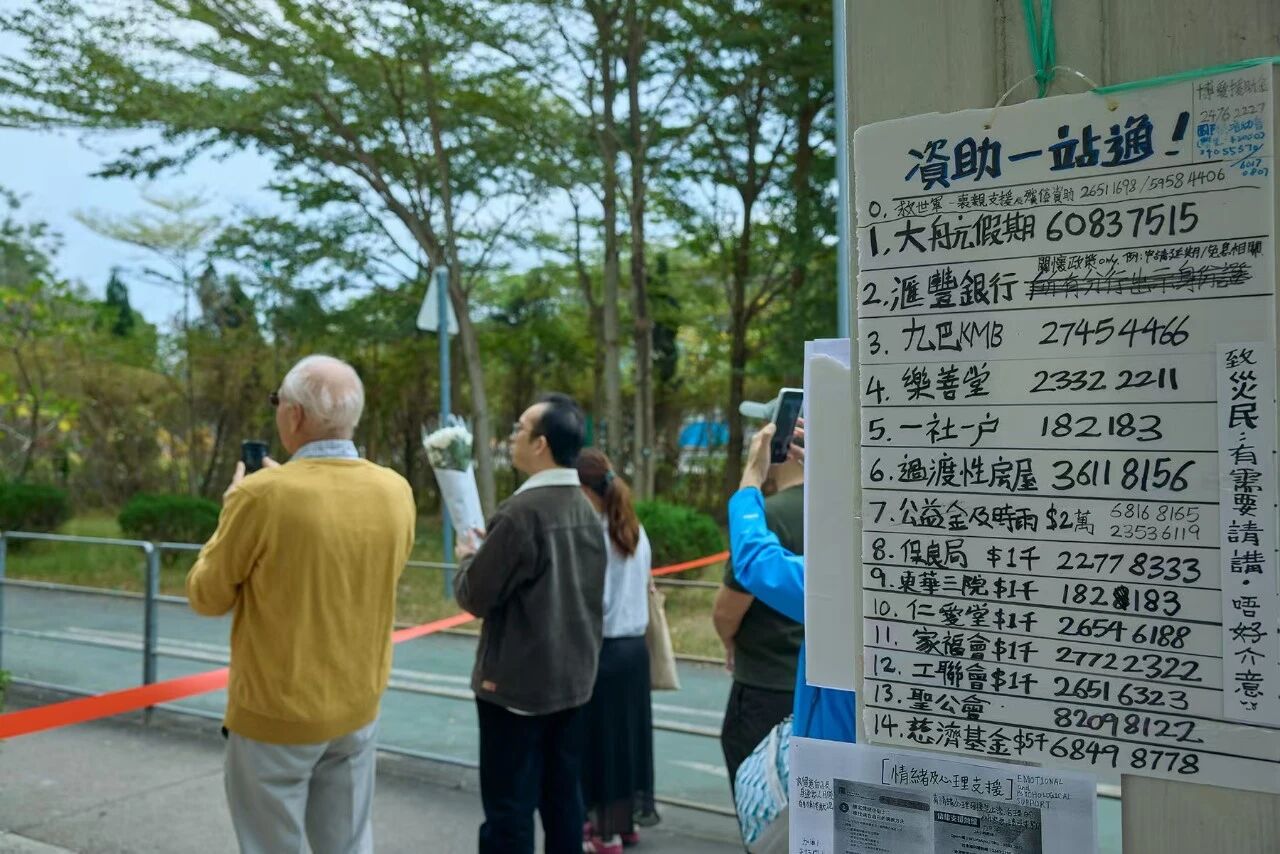 資助一站通!
博愛援助金
2476 2227
0. 救世軍 - 喪親支援及殯儀資助 26511698/5958 4406
1. 大舟元假期 60837515
2. 滙豐銀行 關懷政策only, 例:申請延期/免息相關
3. 九巴KMB 2745 4466
4. 樂善堂 2332 2211
5. 一社一户 182183
6. 過渡性房屋 3611 8156
7. 公益金及時雨 $2萬 6816 8165
2353 6119
8. 保良局 $1千 2277 8333
9. 東華三院 $1千 182 183
10. 仁愛堂 $1千 2654 6188
11. 家福會 $1千 2772 2322
12. 工聯會 $1千 2651 6323
13. 聖公會 8209 8122
14. 慈濟基金 $5千 6849 8778
致災民:有需要請講·唔好介意
[情緒及心理支援]
EMOTIONAL
and
PSYCHOLOGICAL
SUPPORT